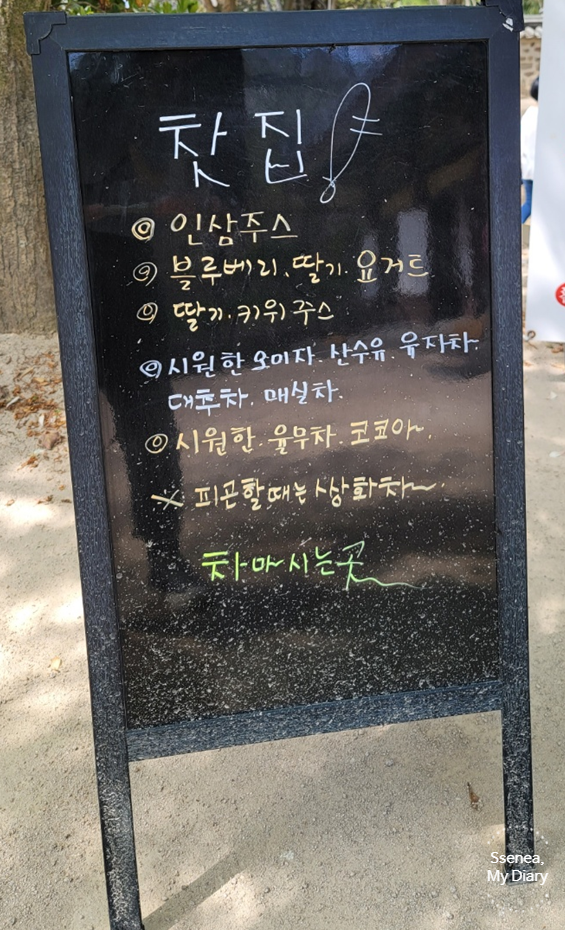 찻집
◎ 인삼주스
◎ 블루베리. 딸기. 요거트
◎ 딸기. 키위주스
◎ 시원한 오미자. 산수유. 유자차.
대추차. 매실차.
◎ 시원한. 율무차. 코코아.
※ 피곤할때는 쌍화차~.
차 마시는곳
Ssenea,
My Diary